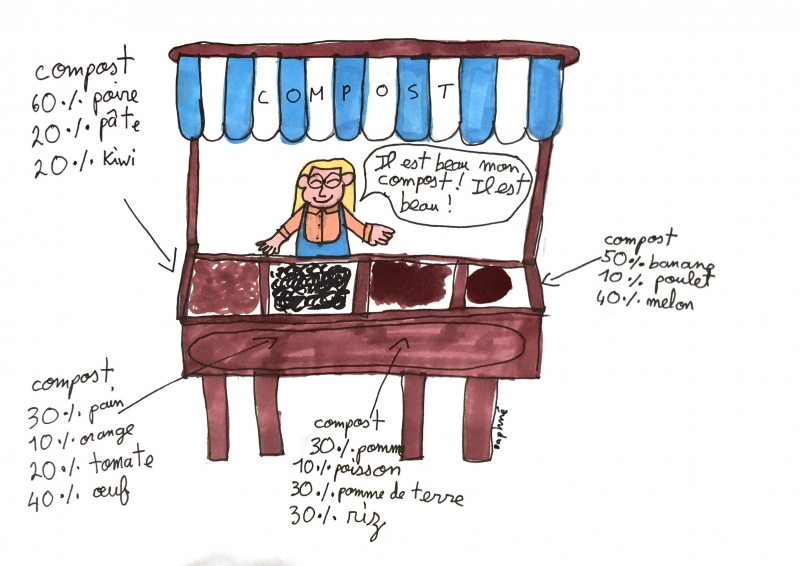 compost
60% poire
20% pâte
20% kiwi
COMPOST
Il est beau mon
compost! Il est
beau!
compost
50% banane
10% poulet
40% melon
compost
30% pain
10% orange
20% tomate
40% œuf
compost
30% pomme
10% poisson
30% pomme de terre
30% riz
Daphné